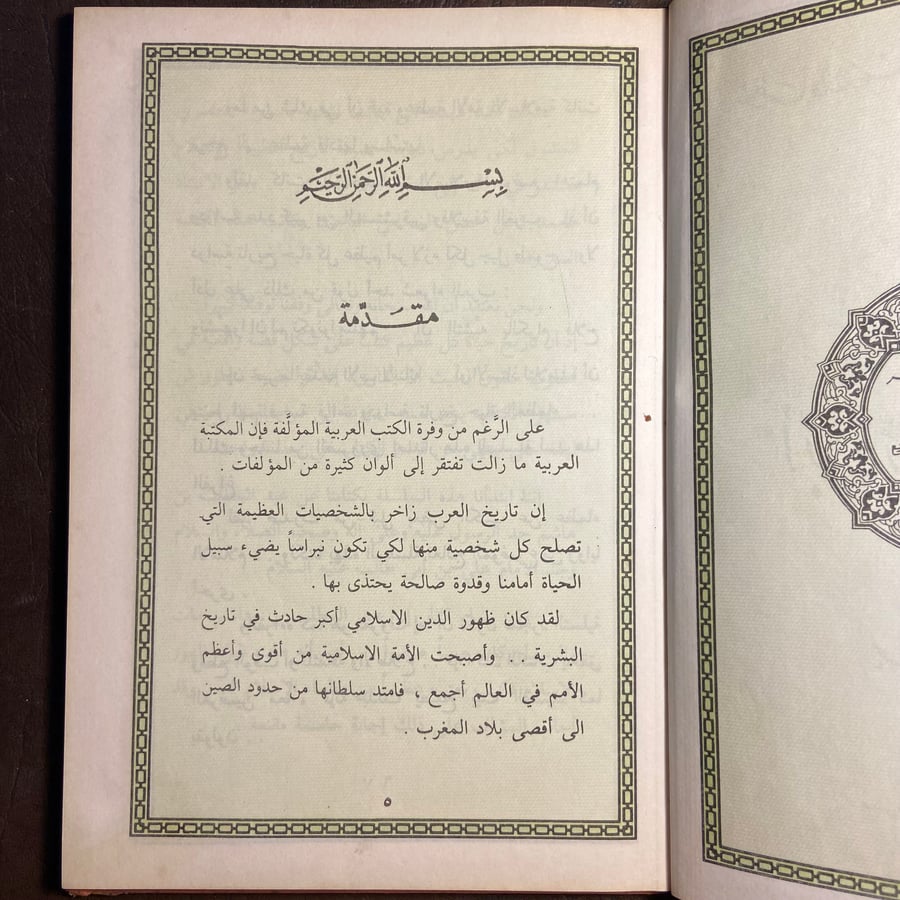 بِسْمِ اللَّهِ الرَّحْمَٰنِ الرَّحِيمِ
مقدّمة
على الرَّغم من وفرة الكتب العربية المؤلَّفة فإن المكتبة
العربية ما زالت تفتقر إلى ألوان كثيرة من المؤلفات .
إن تاريخ العرب زاخر بالشخصيات العظيمة التي
تصلح كل شخصية منها لكي تكون نبراساً يضيء سبيل
الحياة أمامنا وقدوة صالحة يحتذى بها .
لقد كان ظهور الدين الاسلامي أكبر حادث في تاريخ
البشرية .. وأصبحت الأمة الاسلامية من أقوى وأعظم
الأمم في العالم أجمع ، فامتد سلطانها من حدود الصين
الى أقصى بلاد المغرب .
٥